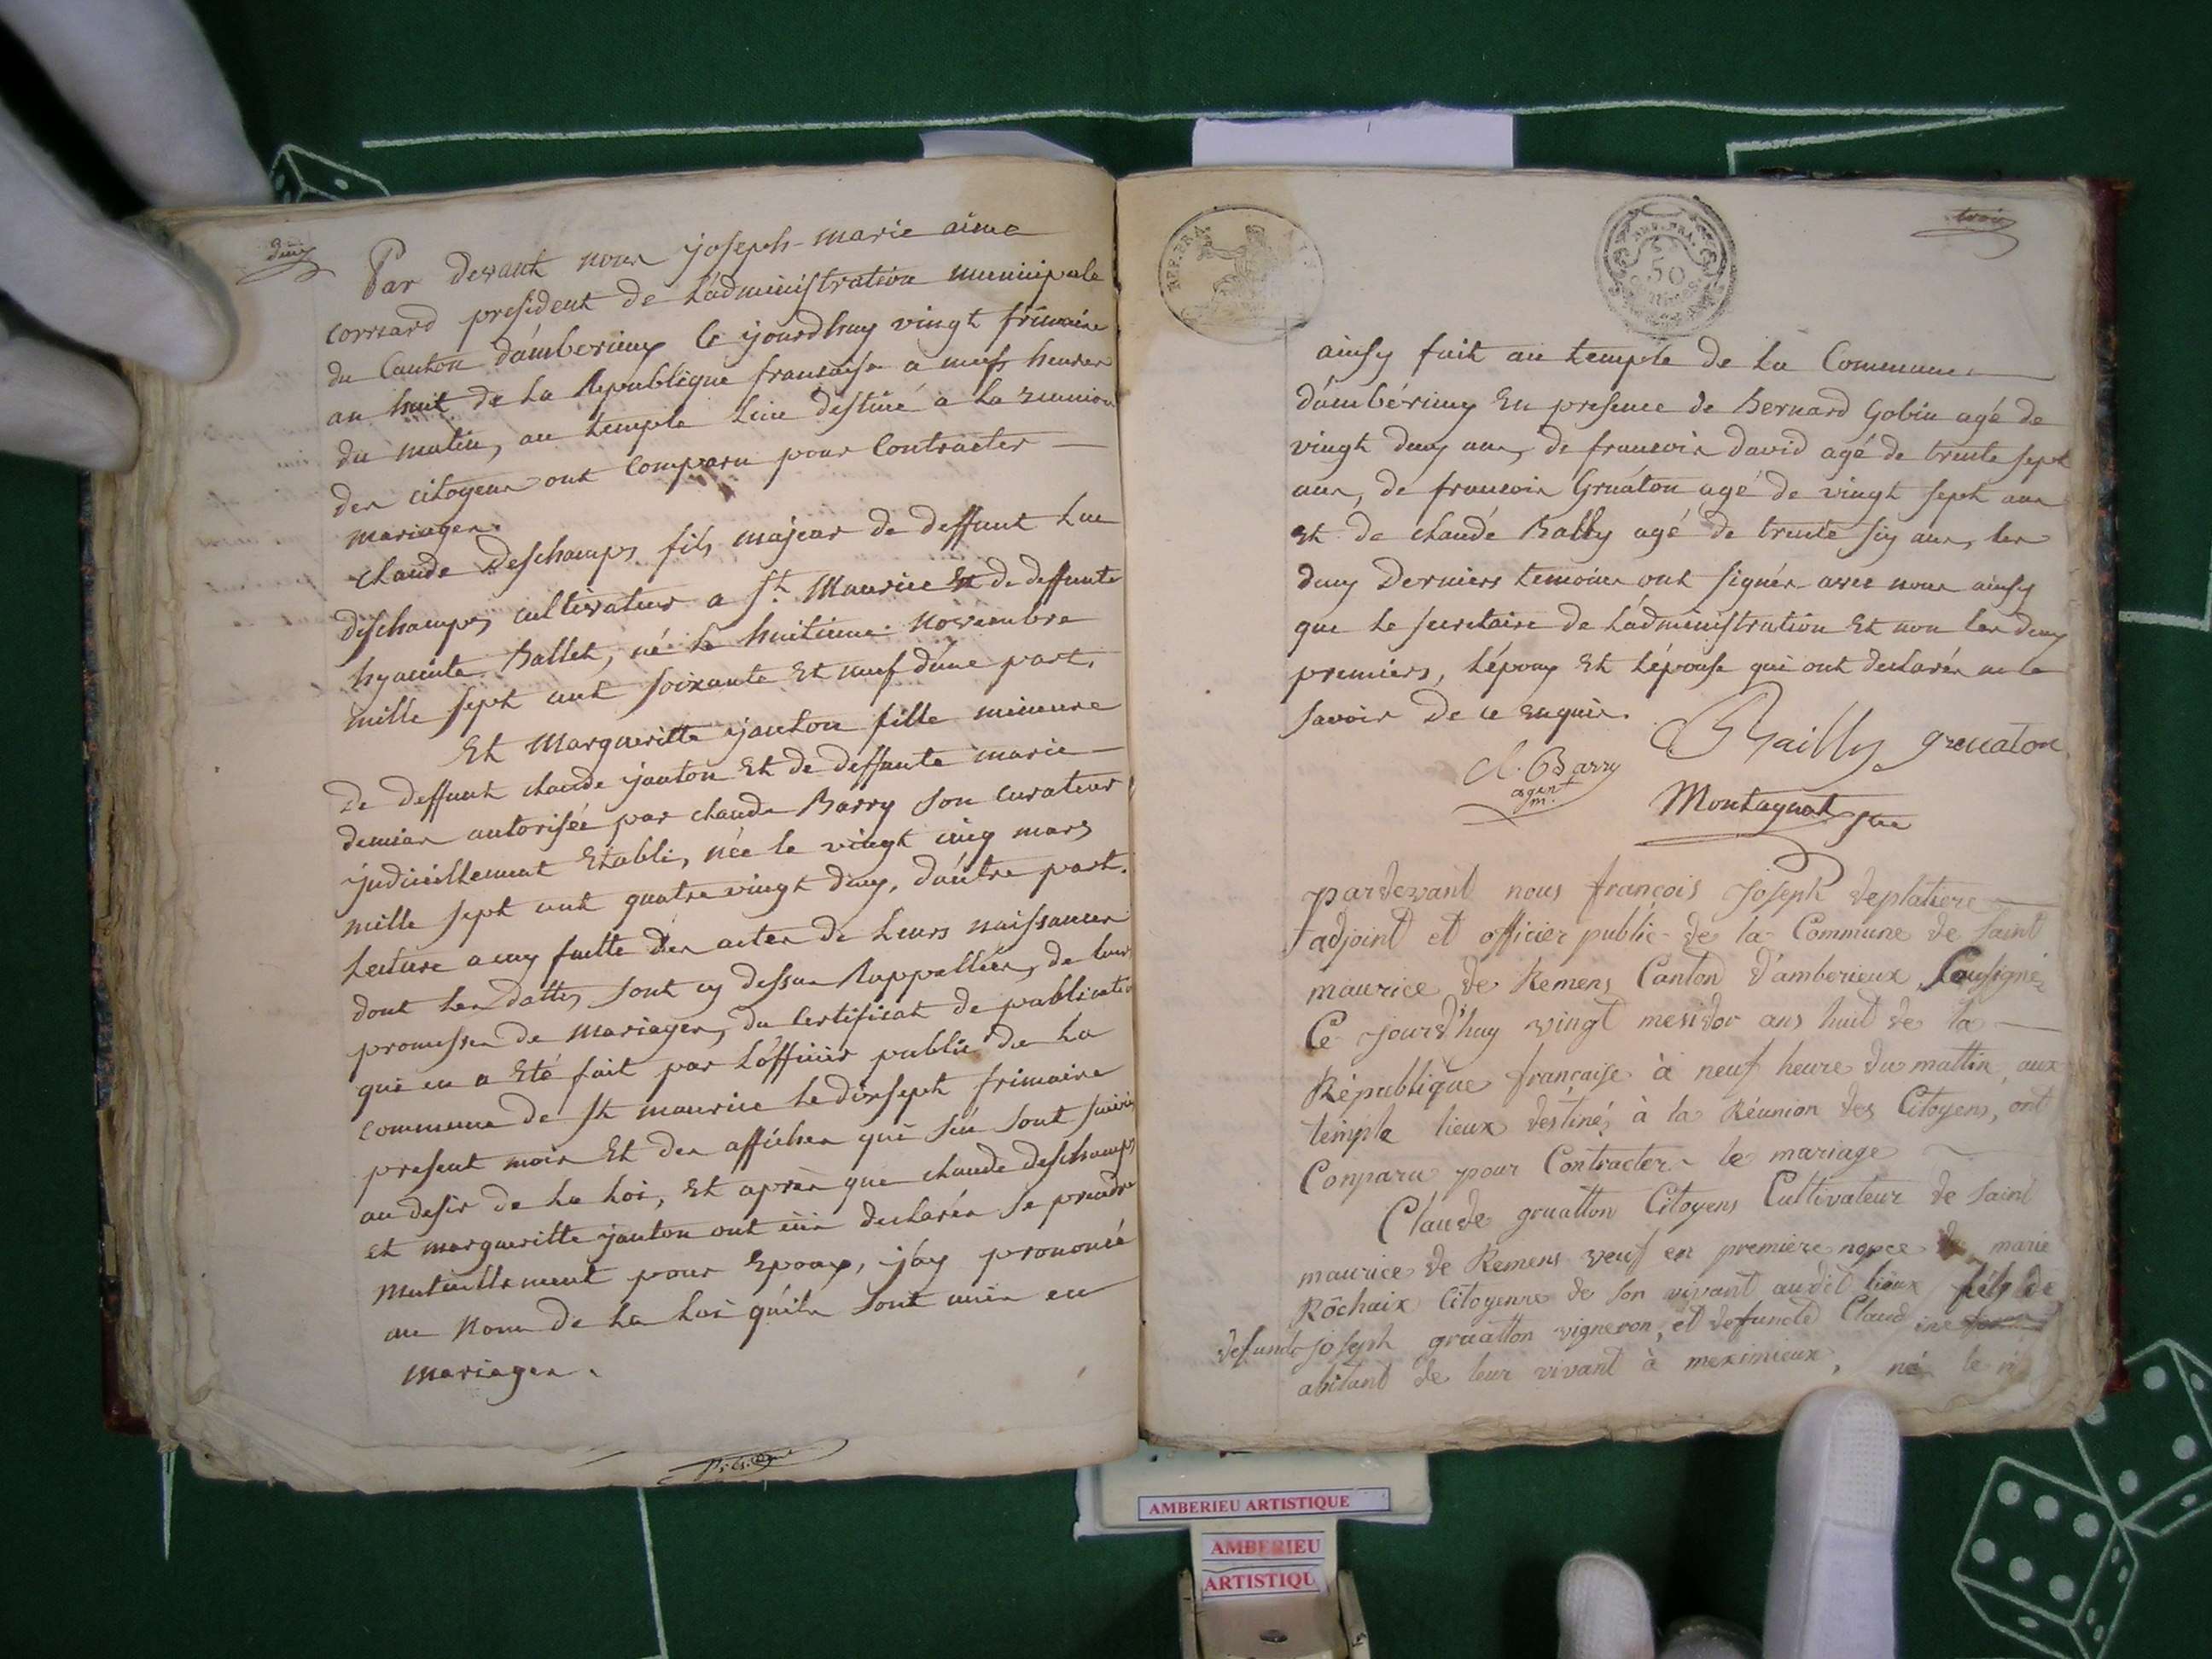 deux
Par devant nous joseph-marie aimé
corriard president de L'administration municipale
du Canton d'amberieux Ce jourdhuy vingt frimaire
an huit de La Republique francaise a neuf heures
du matin, au temple Lieu destiné a La reunion
des citoyens ont Comparu pour Contracter
mariages.
claude Deschamps fils majeur de deffunt Luc
deschamps, cultivateur a St. Maurice Et de deffunte
hyacinte Ballet, né le huitieme Novembre
mille sept cent soixante Et neuf d'une part.
Et Margueritte janton fille mineure
De deffunt claude janton Et de deffunte marie
demias autorisée par claude Barry son curateur
judiciellement Etabli, née le vingt cinq mars
mille sept cent quatre vingt deux, d'autre part.
Lecture a ux faitte des actes de Leurs naissances
dont Les dattes sont cy dessus Rappellées, de leurs
promesses de mariages, du Certificat de publication
qui en a Eté fait par L'officier public de La
commune de St maurice Le dixsept frimaire
present mois Et des affiches qui s'en sont suivis
au desir de La Loi, Et après que claude deschamps
et margueritte janton ont declarés se prendre
mutuellement pour Epoux, j'ay prononcé
au Nom de La Loi qu'ils sont unis en
mariages.
REP.FRA
REP.FRA.
50
CENTIMES
trois
ainsy fait au temple de La Commune
d'ambérieux En presence de Bernard Gobin agé de
vingt deux ans, de francois david agé de trente sept
ans, de francois Gruaton agé de vingt sept ans
Et de claude Bailly agé de trente six ans, les
deux Derniers temoins ont signés avec nous ainsy
que Le secretaire de L'administration Et non Les deux
premiers, L'époux Et L'épouse qui ont declarés ne le
savoir De ce Enquis.
Bailly gruaton
Cl. Barry
agent
m.
Montagnat sre
pardevant nous françois joseph deplatiere
adjoint et officier public de la Commune de saint
maurice de Remens Canton d'amberieux, Sousigné
Ce jourd'huy vingt mesidor ans huit de la
République française à neuf heure du mattin, aux
temple lieux destiné à la Réunion des Citoyens, ont
Conparu pour Contracter le mariage
Claude gruatton Citoyens Cultivateur de saint
maurice de Remens veuf en premiere nopce de marie
Rôchaix Citoyenne de son vivant audit lieux fils de
defunct joseph gruatton vigneron, et defuncte Claudine
abitant de leur vivant à meximieux, né le
AMBERIEU ARTISTIQUE
AMBERIEU
ARTISTIQU